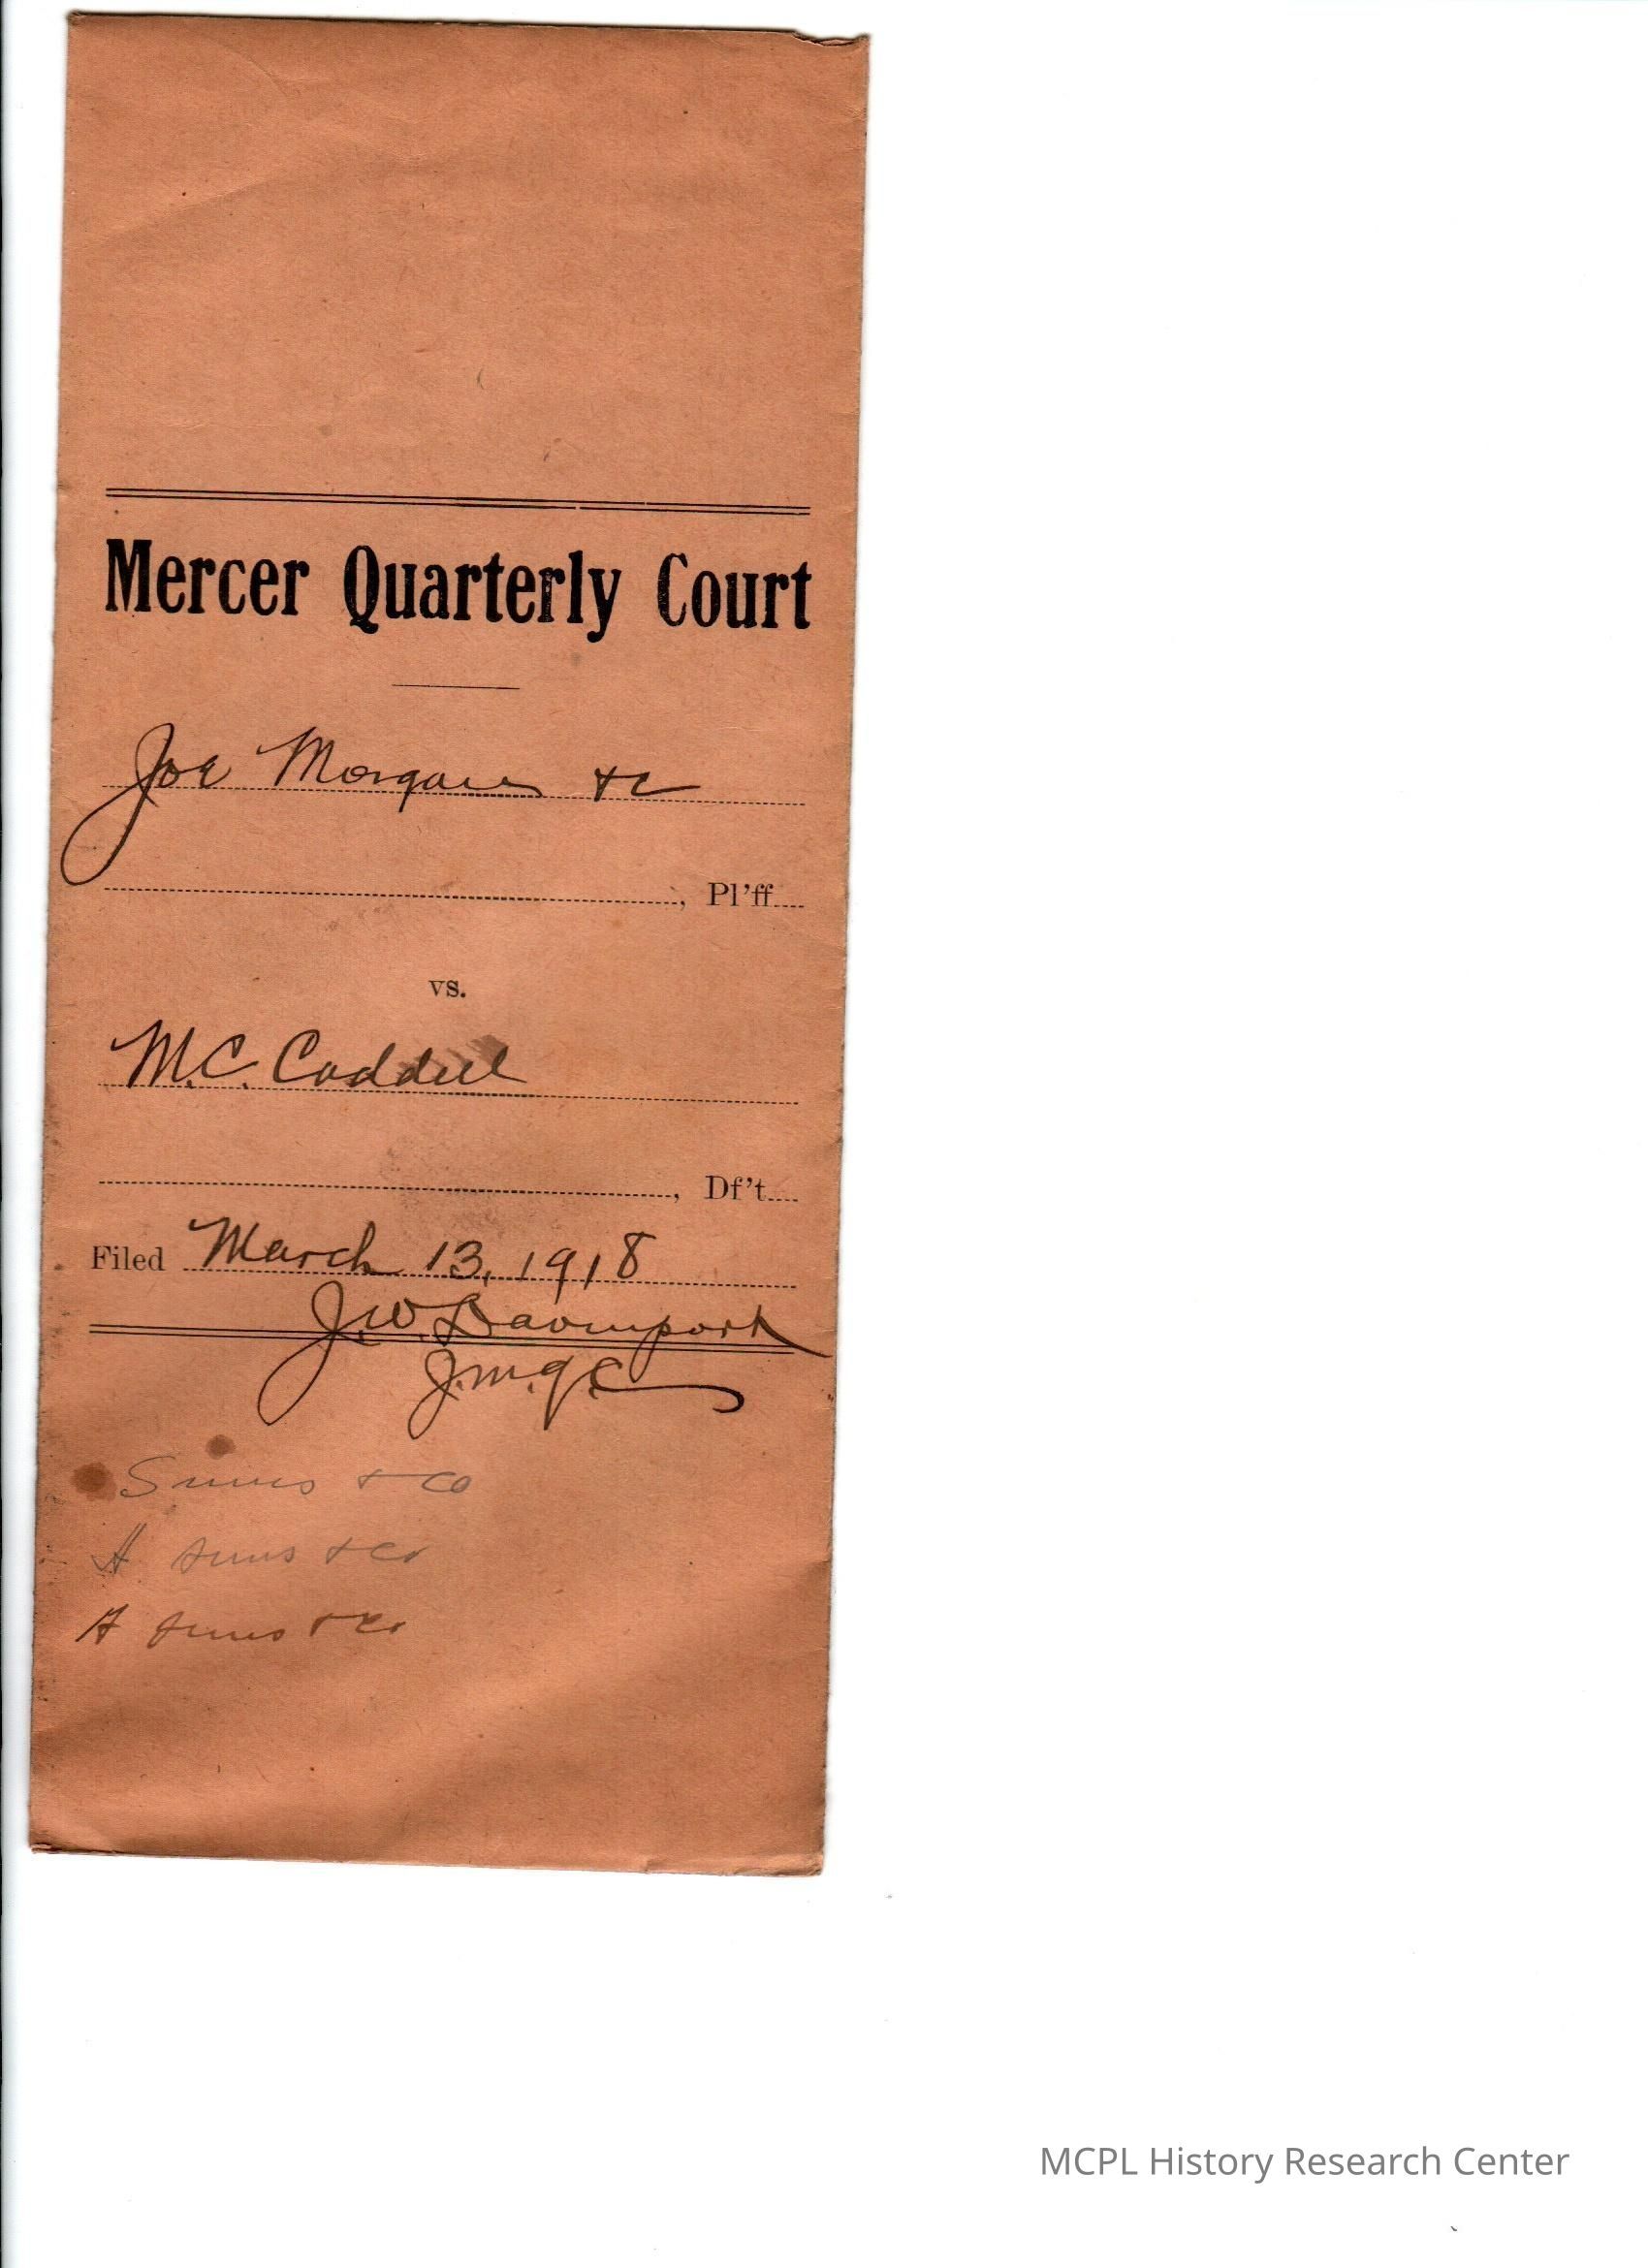 Mercer Quarterly Court
Joe Morgan &c
, Pl'ff
vs.
M.C. Caddell
, Df't
Filed March 13, 1918
J.W. Davenport
J.M.Q.C.
& Co
A & Co
A & Co
MCPL History Research Center